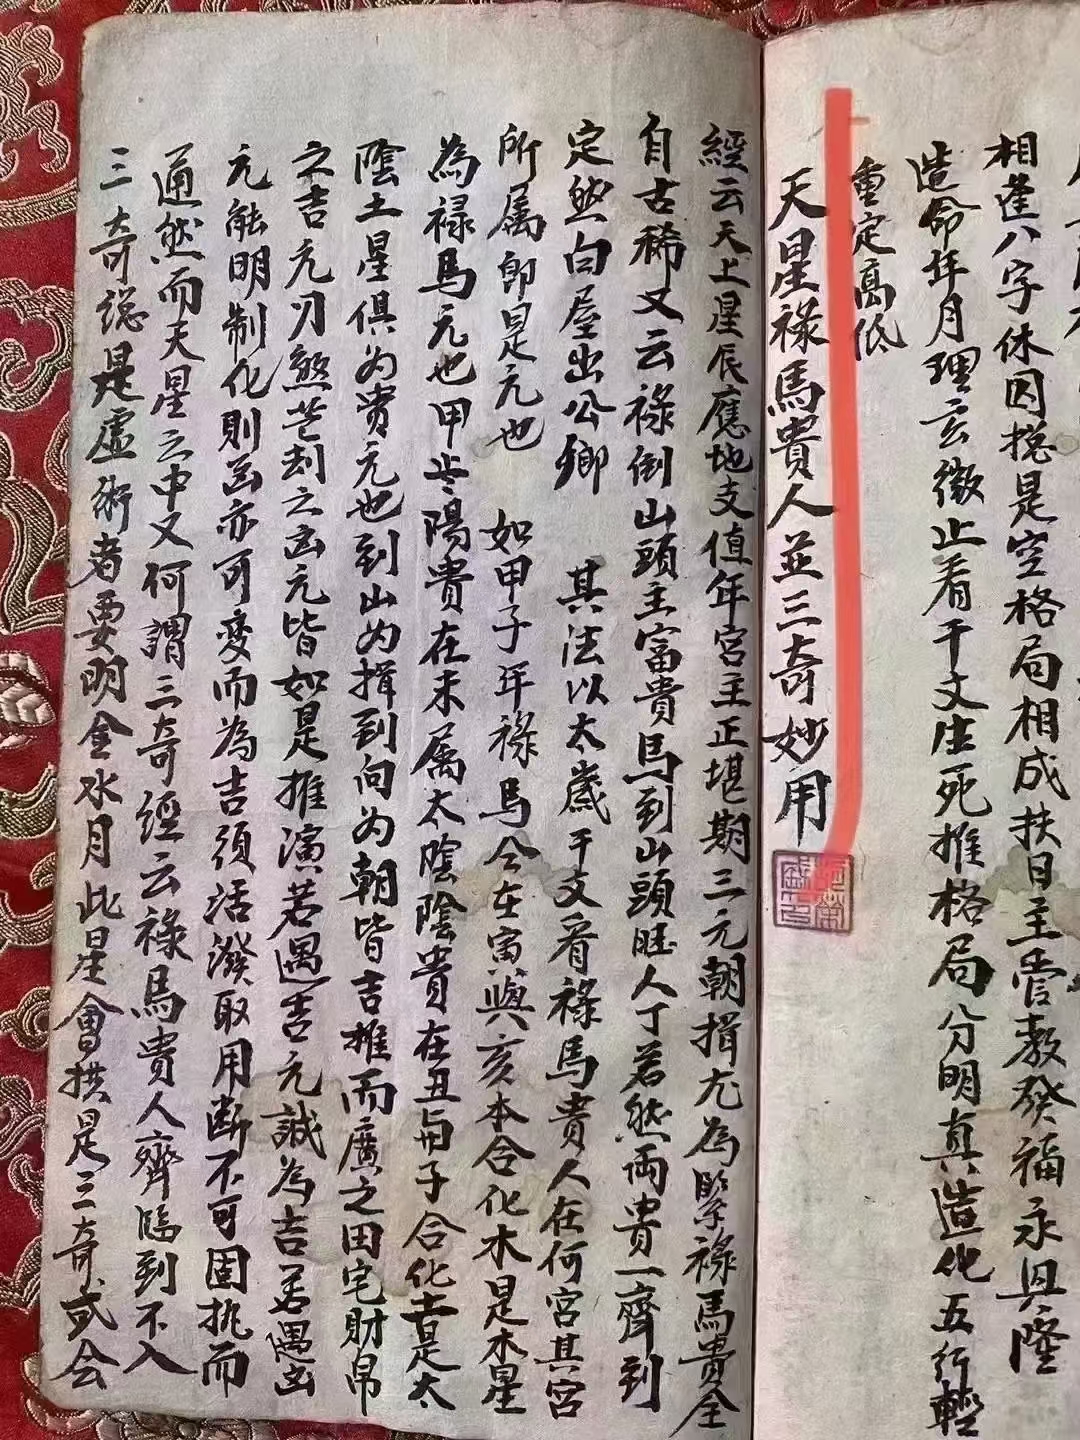 相逢八字休囚搃是空格局相成扶日主官教發福永興隆
造命年月理玄微止看干支生死推格局分明真造化五行輕
重定高低
天星祿馬貴人並三奇妙用
經云天上星辰應地支值年宮主正堪期三元朝揖尤為緊祿馬貴全
自古稀又云祿倒山頭主富貴馬到山頭旺人丁若然兩貴一齊到
定然白屋出公卿 其法以太歲干支看祿馬貴人在何宮其宮
所属即是元也 如甲子年祿馬仝在寅與亥本合化木是木星
為禄馬元也甲 陽貴在未属太陰陰貴在丑与子合化土是太
陰土星俱为貴元也到山为揖到向为朝皆吉推而廣之田宅財帛
之吉元刃煞芒刦之凶元皆如是推演若遇吉元誠為吉若遇凶
元能明制化則凶亦可变而為吉須活潑取用断不可固执而
通然而天星之中又何謂三奇經云祿馬貴人齊臨到不入
三奇總是虛術者要明金水月此星會拱是三奇或会